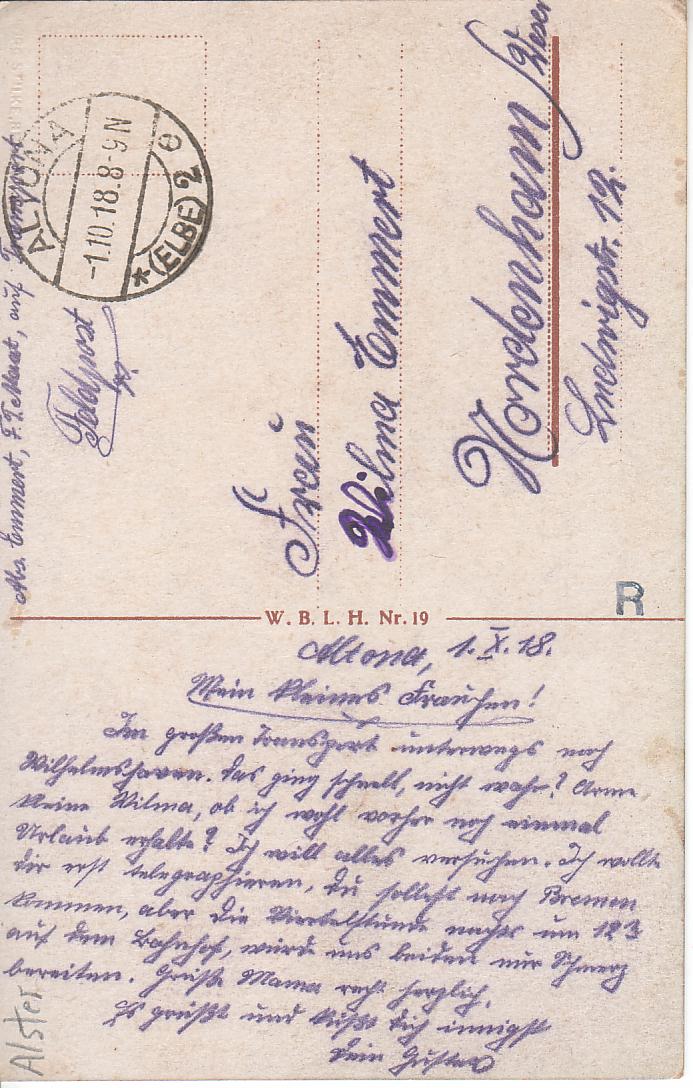 ALTONA
(ELBE) 2 e
* -1.10.18.8-9N
Abs. Emmert, auf Transport
Feldpost
Frau
Wilma Emmert
Nordenham
Weser
Ludwigstr. 12.
R
W. B. L. H. Nr. 19
Altona, 1. X. 18.
Mein kleines Frauchen!
Im großen Transport unterwegs nach
Wilhelmshaven. Das ging schnell, nicht wahr? Arme
kleine Wilma, ob ich wohl vorher noch einmal
Urlaub erhalte? Ich will alles versuchen. Ich wollte
Dir erst telegraphieren, Du solltest nach Bremen
kommen, aber die Viertelstunde nachts um 123
auf dem Bahnhof, würde uns beiden nur Schmerz
bereiten. Grüße Mama recht herzlich.
Es grüßt und küßt Dich innigst
Dein Gustav
Alster